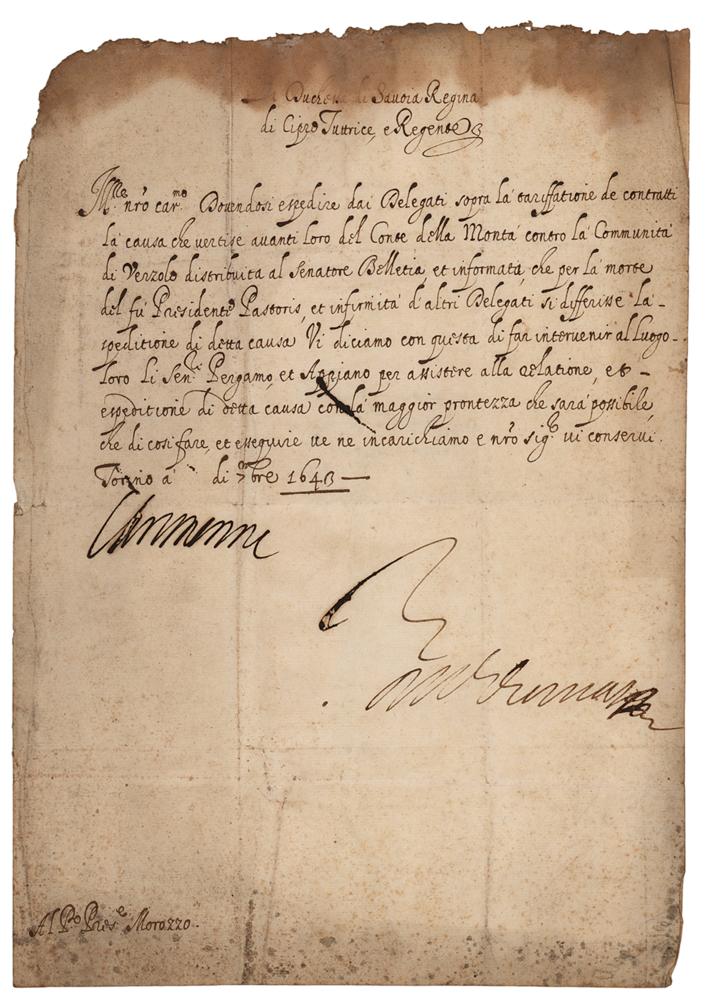 La Duchessa di Savoia Regina
di Cipro Tuttrice, e Regente
Ill.re nr̃o car.mo Dovendosi espedire dai Delegati sopra la tariffatione de contratti
la causa che vertise avanti loro del Conte della Monta contro la Communità
di Verzolo distribuita al Senatore Belletia et informata, che per la morte
del fù Presidente Pastoris, et infirmita d'altri Delegati si differisse la -
speditione di detta causa Vi diciamo con questa di far intervenir al Luogo -
loro li Sen.ri Pergamo, et Appiano per assistere alla relatione, et -
espeditione di detta causa con la maggior prontezza che sarà possibile,
che di cosi fare, et esseguire ve ne incarichiamo e nr̃o sig.re vi conservi.
Torino a di 9bre 1643 —
Al P.o Pres.e Morozzo.